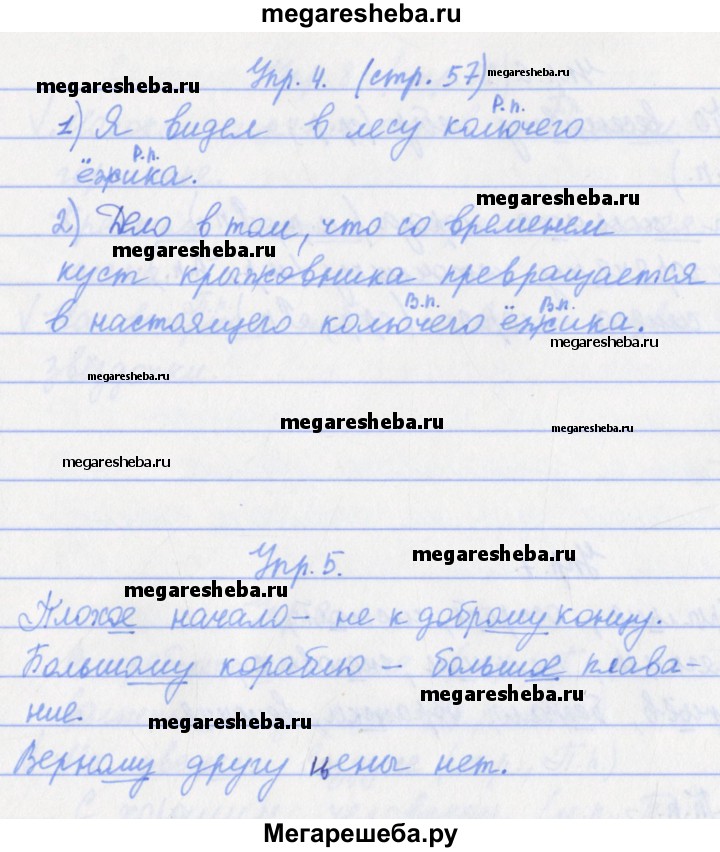 megaresheba.ru
Упр. 4. (стр. 57) megaresheba.ru
megaresheba.ru
Р.п.
1) Я видел в лесу колючего
Р.п.
ёжика.
megaresheba.ru
2) Дело в том, что со временем
megaresheba.ru
куст крыжовника превращается
В.п. В.п.
в настоящего колючего ёжика.
megaresheba.ru
megaresheba.ru
megaresheba.ru megaresheba.ru
megaresheba.ru
Упр. 5. megaresheba.ru
megaresheba.ru
Плохое начало – не к доброму концу.
Большому кораблю – большое плава-
megaresheba.ru
ние. megaresheba.ru
Верному другу цены нет.
Мегарешеба.ру